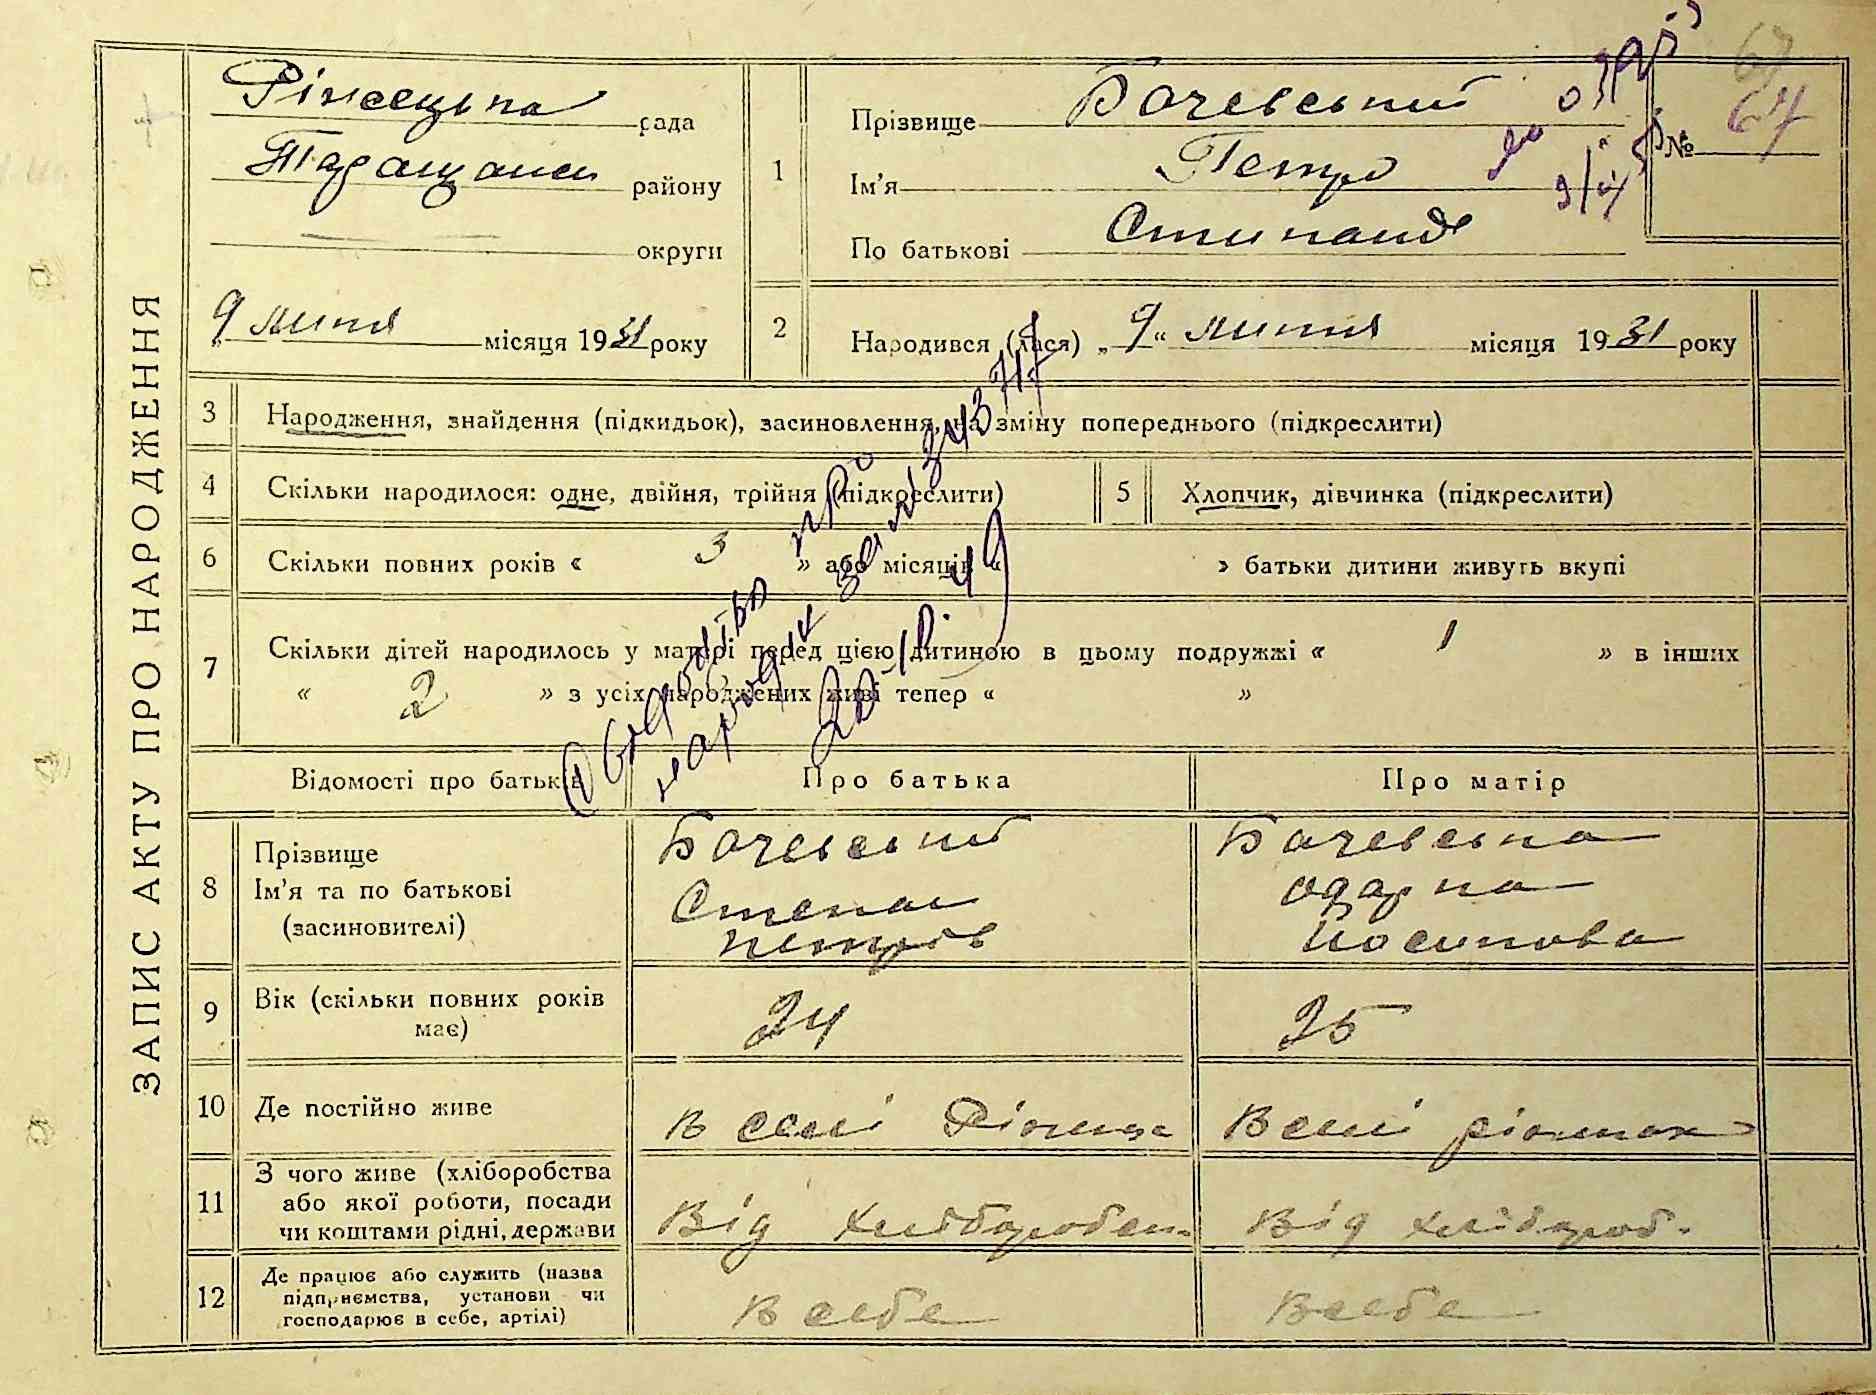 ЗАПИС АКТУ ПРО НАРОДЖЕННЯ
рада
району
округи
9 липня місяця 1931 року
1
Прізвище Бачевський
Ім'я Петро
По батькові
№ 67
67
2
Народився (лася) „ 9 “ липня місяця 1931 року
3
Народження, знайдення (підкидьок), засиновлення, на зміну попереднього (підкреслити)
4
Скільки народилося: одне, двійня, трійня (підкреслити)
5
Хлопчик, дівчинка (підкреслити)
6
Скільки повних років « 3 » або місяців « » батьки дитини живуть вкупі
7
Скільки дітей народилось у матері перед цією дитиною в цьому подружжі « 1 » в інших
« 2 » з усіх народжених живі тепер « »
Свидоцтво про
народжен
20-IV-49
Відомості про батьків
Про батька
Про матір
8
Прізвище
Ім'я та по батькові
(засиновителі)
Бачевський
Степан
Петрів
Бачевська
Одарка
Йосипова
9
Вік (скільки повних років
має)
24
25
10
Де постійно живе
В селі
В селі
11
З чого живе (хліборобства
або якої роботи, посади
чи коштами рідні, держави
Від
Від хлібороб.
12
Де працює або служить (назва
підприємства, установи чи
господарює в себе, артілі)
В себе
В себе